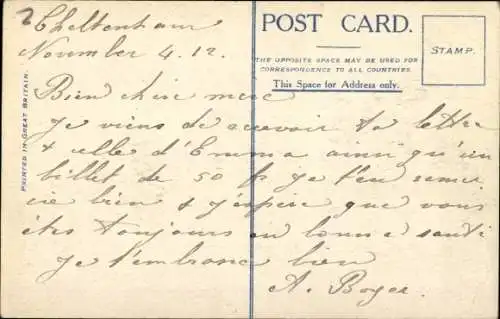 Cheltenham
November 4. 12.
POST CARD.
THE OPPOSITE SPACE MAY BE USED FOR
CORRESPONDENCE TO ALL COUNTRIES.
This Space for Address only.
STAMP.
PRINTED IN GREAT BRITAIN.
Bien chère mere
Je viens de recevoir ta lettre
& celle d'Emma ainsi qu'un
billet de 50 f je t'en remer
cie bien & j'espère que vous
êtes toujours en bonne santé
je t'embrasse bien
A. Boyer